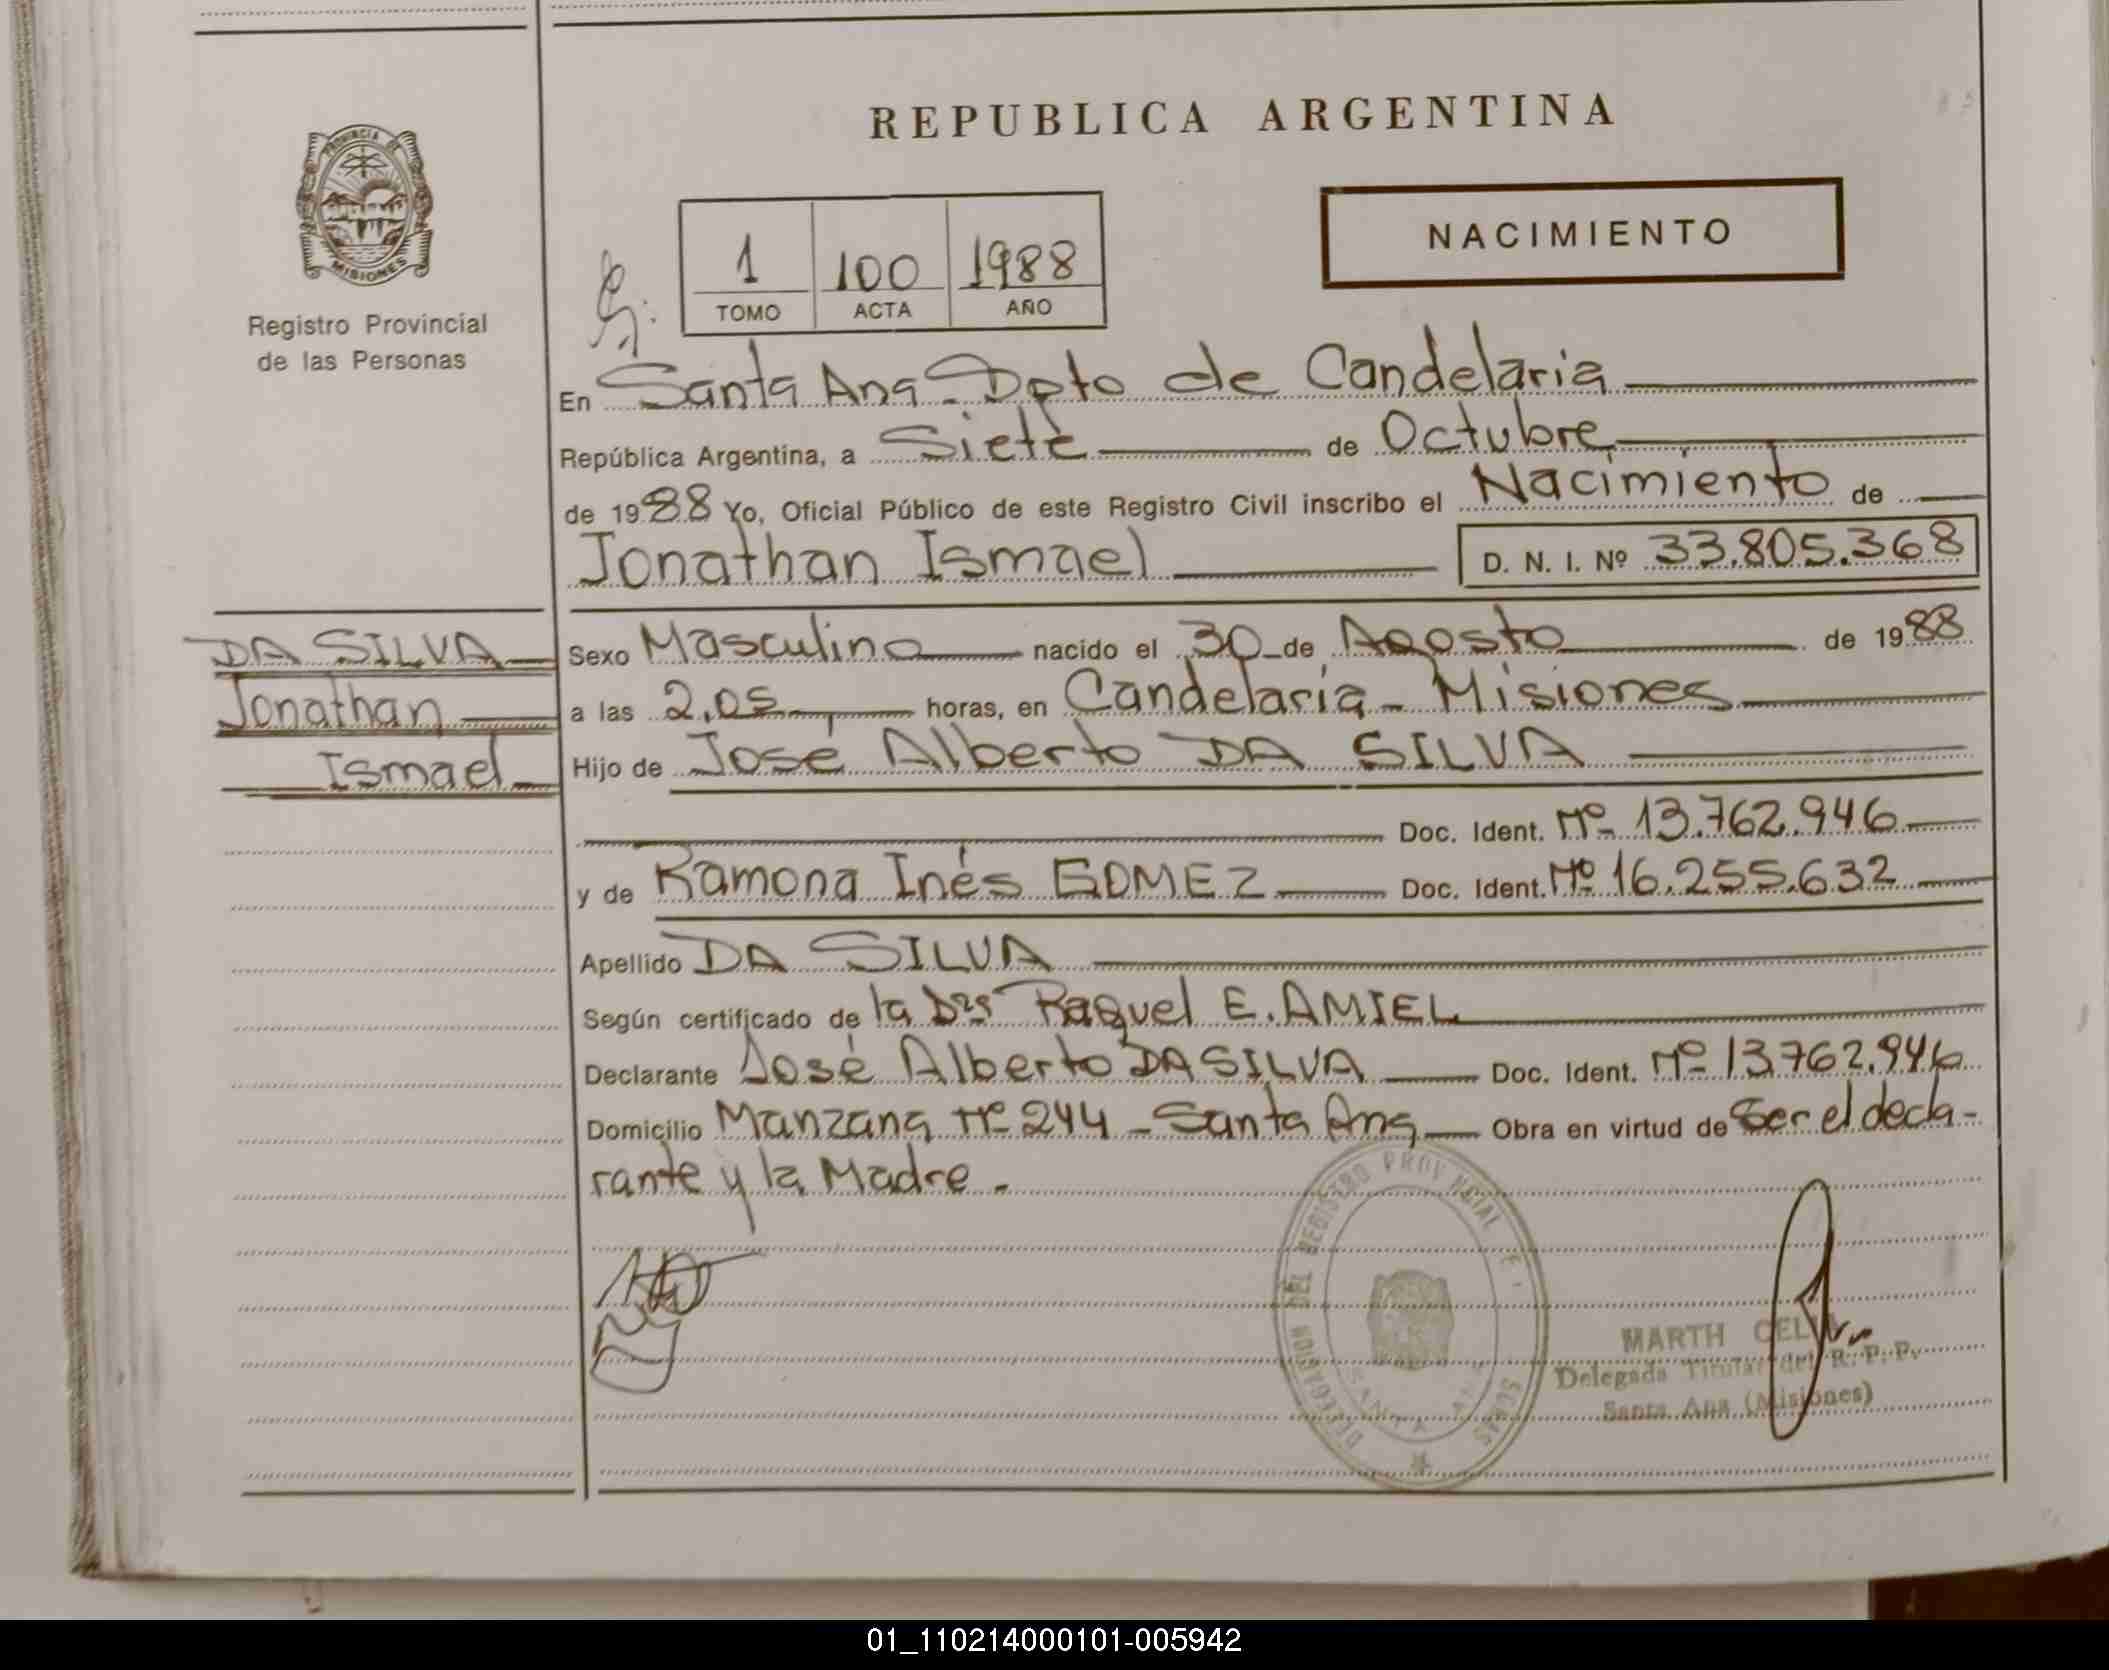 PROVINCIA DE
MISIONES
Registro Provincial
de las Personas
REPUBLICA ARGENTINA
NACIMIENTO
1 100 1988
TOMO ACTA AÑO
En Santa Ana - Dpto de Candelaria
República Argentina, a Siete de Octubre
de 1988 Yo, Oficial Público de este Registro Civil inscribo el Nacimiento de
Jonathan Ismael D. N. I. Nº 33.805.368
DA SILVA
Jonathan
Ismael
Sexo Masculino nacido el 30 de Agosto de 1988
a las 2,05 horas, en Candelaria - Misiones
Hijo de José Alberto DA SILVA
Doc. Ident. Nº 13.762.946
y de Ramona Inés GOMEZ Doc. Ident. Nº 16.255.632
Apellido DA SILVA
Según certificado de la Dra Raquel E. AMIEL
Declarante José Alberto DA SILVA Doc. Ident. Nº 13.762.946
Domicilio Manzana Nº 244 - Santa Ana Obra en virtud de Ser el decla-
rante y la Madre.
DELEGACION DEL REGISTRO PROVINCIAL
SANTA ANA
MARTH
Delegada Titular del R. P. P.
Santa Ana (Misiones)
01_110214000101-005942